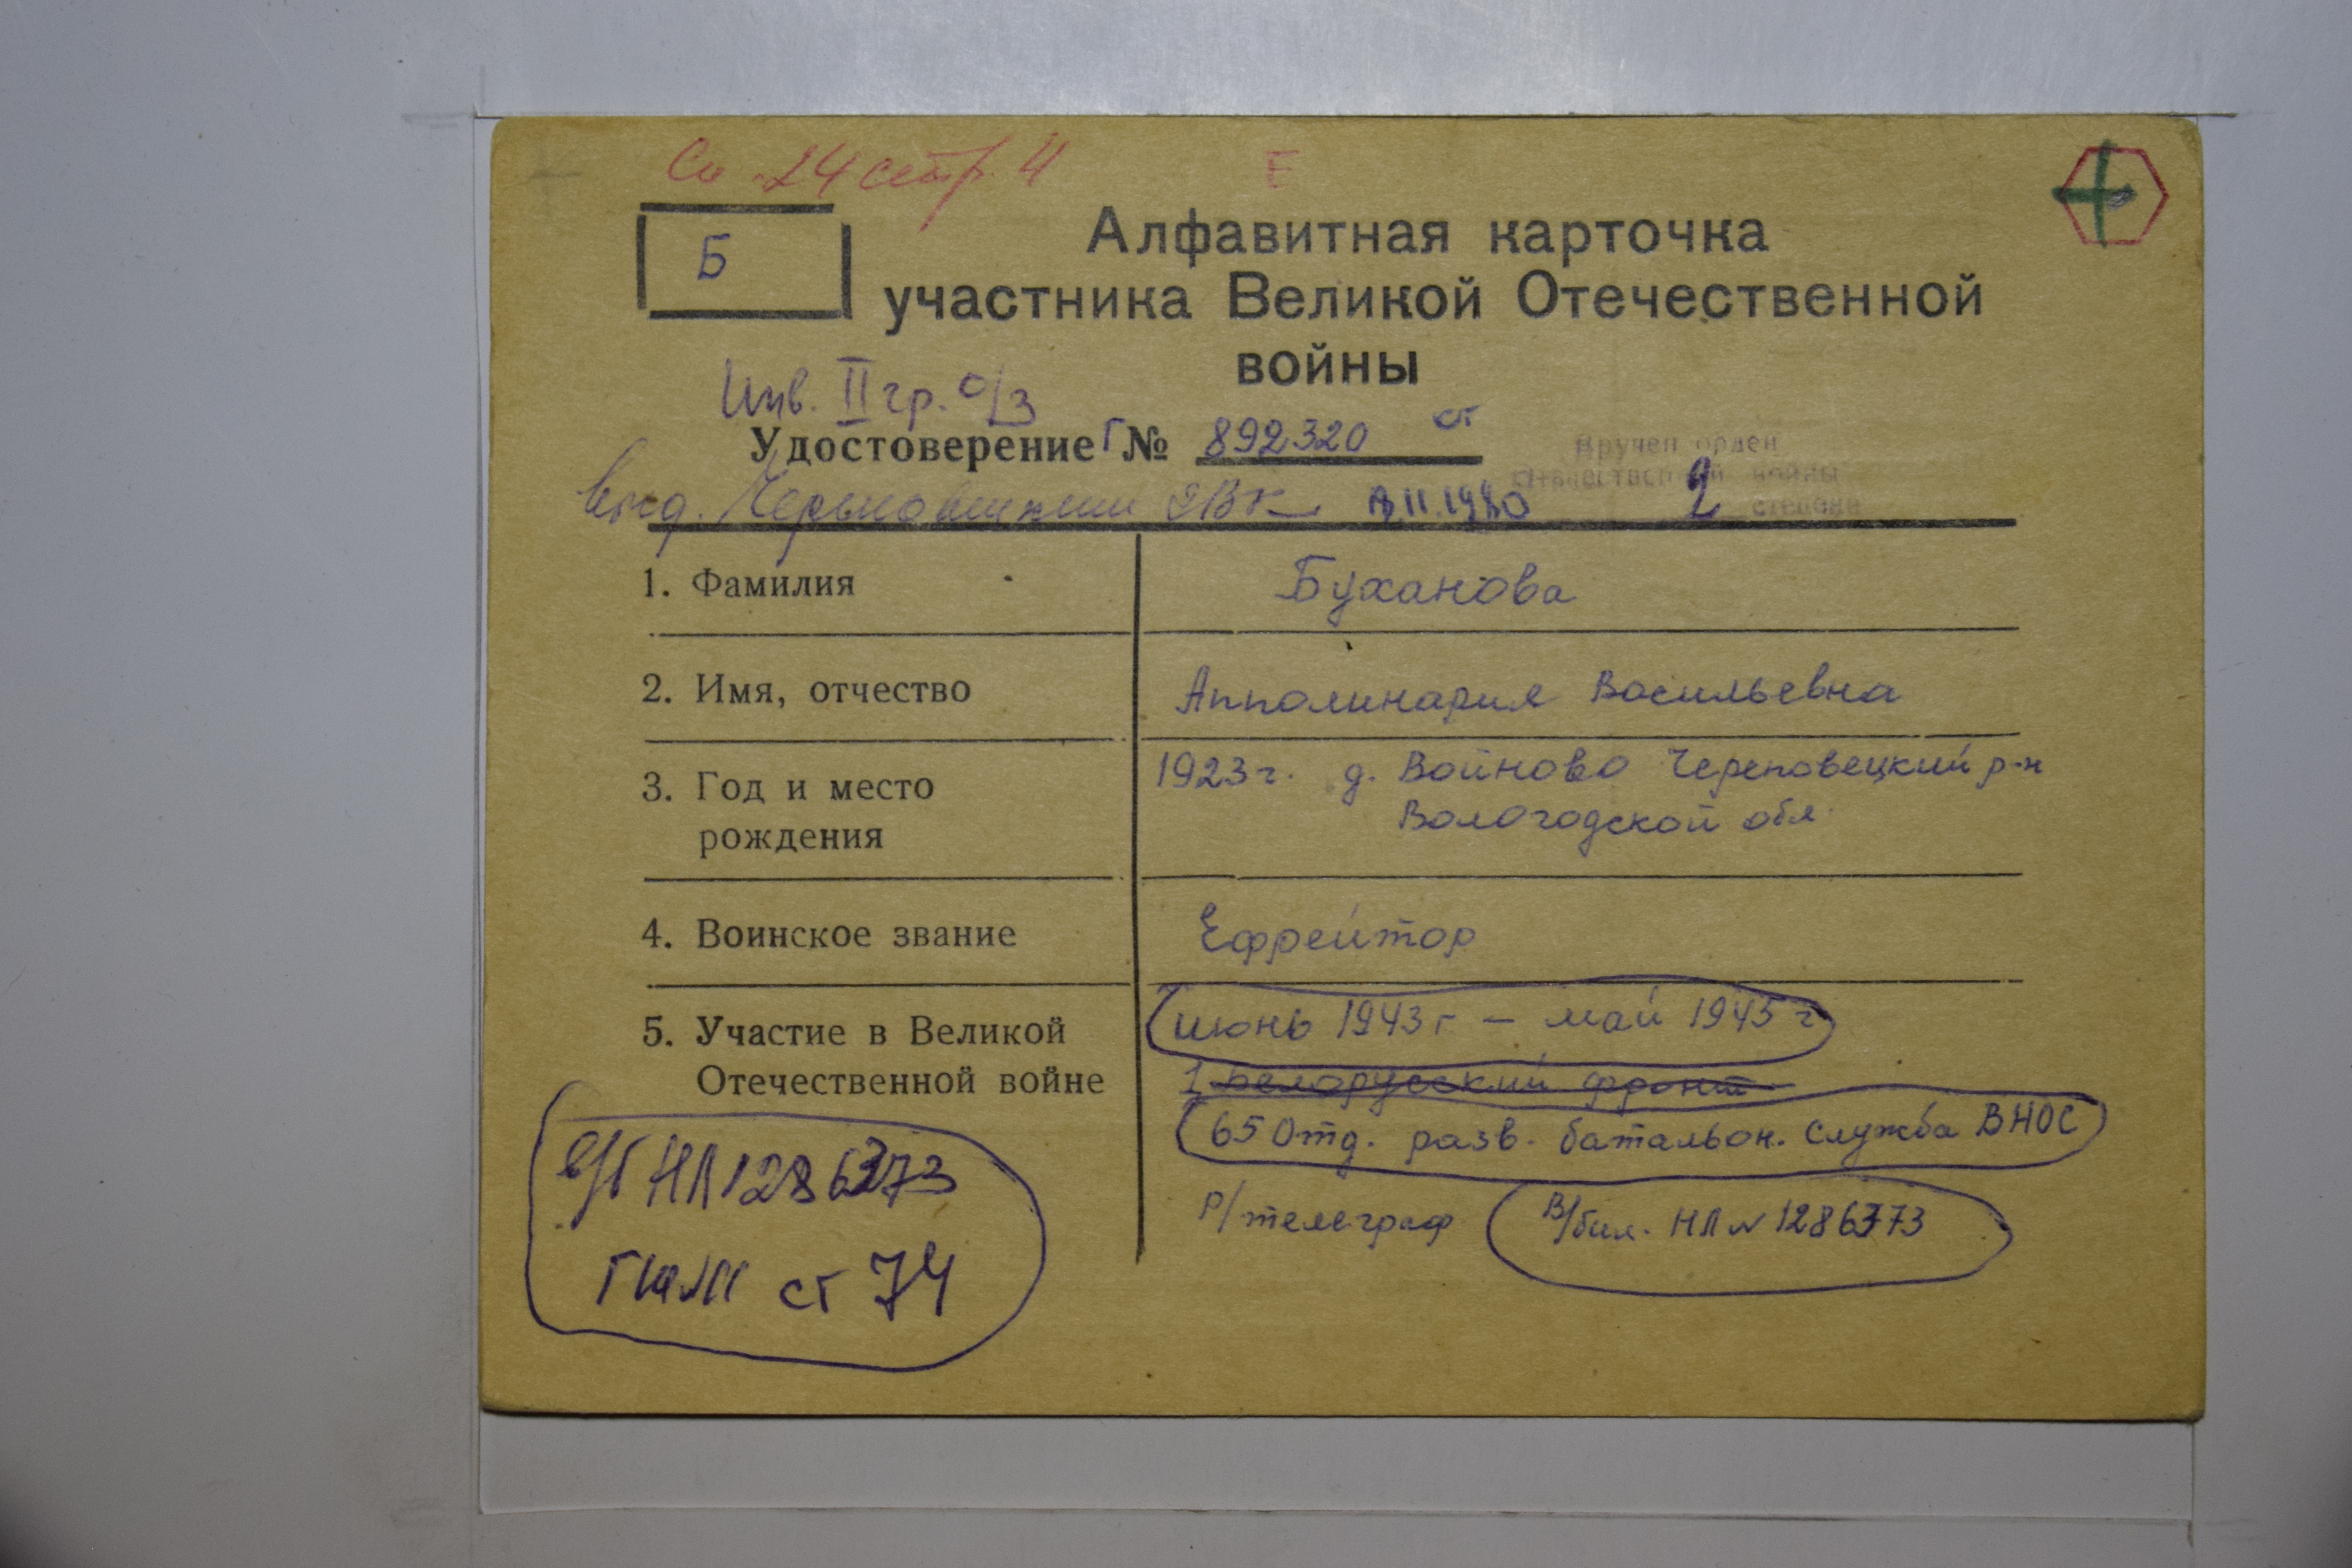 Сп. 24 стр. 4
Б
Алфавитная карточка
участника Великой Отечественной
войны
Инв. II гр. о/з
Удостоверение Г № 892320 ст
Вручен орден
Отечественной войны
2 степени
выд. Череповецким ГВК 11.1980
1. Фамилия Буханова
2. Имя, отчество Апполинария Васильевна
3. Год и место рождения 1923 г. д. Войново Череповецкий р-н
Вологодской обл.
4. Воинское звание Ефрейтор
5. Участие в Великой Отечественной войне июнь 1943 г - май 1945 г
1 Белорусский фронт
65 Отд. разв. батальон. Служба ВНОС
Р/телеграф В/бил. НЛ № 1286373
в/б НЛ 1286373
ст 74